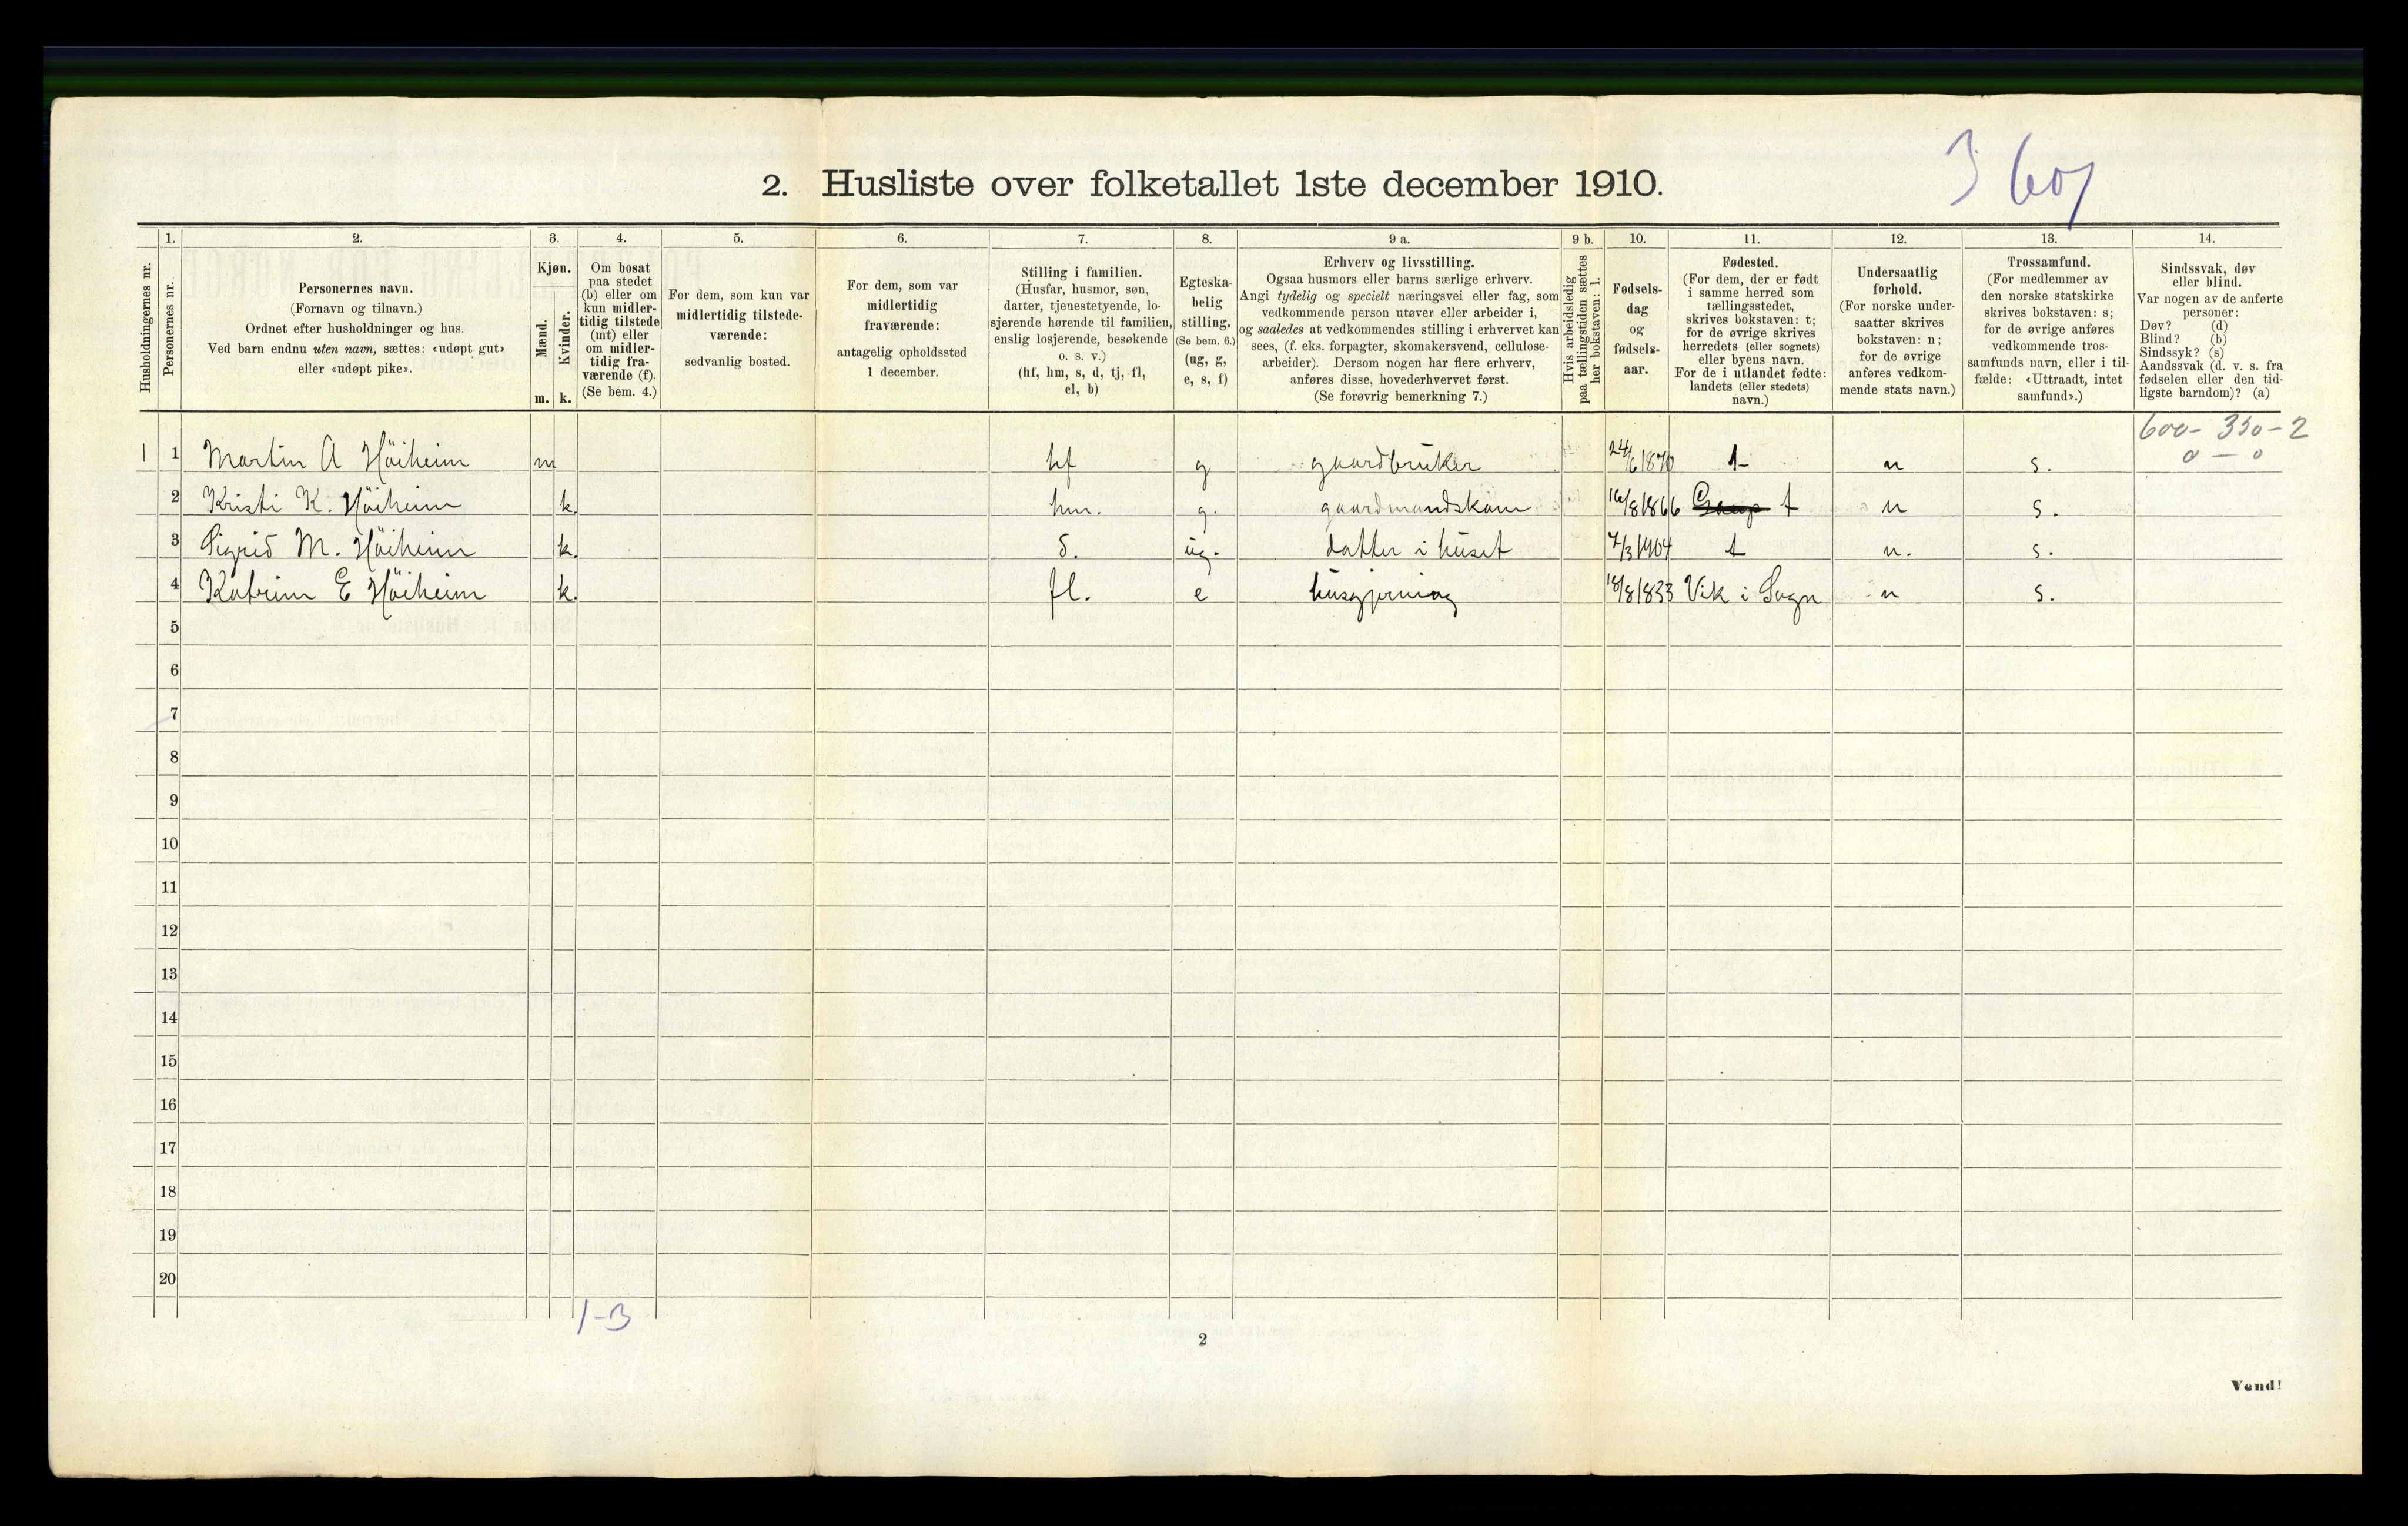 3 607
2. Husliste over folketallet 1ste december 1910.
1. 2. 3. 4. 5. 6. 7. 8. 9 a. 9 b. 10. 11. 12. 13. 14.
Husholdningernes nr.
Personernes nr.
Personernes navn.
(Fornavn og tilnavn.)
Ordnet efter husholdninger og hus.
Ved barn endnu uten navn, sættes: «udøpt gut»
eller «udøpt pike».
Kjøn.
Mænd.
Kvinder.
m. k.
Om bosat
paa stedet
(b) eller om
kun midler-
tidig tilstede
(mt) eller
om midler-
tidig fra-
værende (f).
(Se bem. 4.)
For dem, som kun var
midlertidig tilstede-
værende:
sedvanlig bosted.
For dem, som var
midlertidig
fraværende:
antagelig opholdssted
1 december.
Stilling i familien.
(Husfar, husmor, søn,
datter, tjenestetyende, lo-
sjerende hørende til familien,
enslig losjerende, besøkende
o. s. v.)
(hf, hm, s, d, tj, fl,
el, b)
Egteska-
belig
stilling.
(Se bem. 6.)
(ug, g,
e, s, f)
Erhverv og livsstilling.
Ogsaa husmors eller barns særlige erhverv.
Angi tydelig og specielt næringsvei eller fag, som
vedkommende person utøver eller arbeider i,
og saaledes at vedkommendes stilling i erhvervet kan
sees, (f. eks. forpagter, skomakersvend, cellulose-
arbeider). Dersom nogen har flere erhverv,
anføres disse, hovederhvervet først.
(Se forøvrig bemerkning 7.)
Hvis arbeidsledig
paa tællingstiden sættes
her bokstaven: l.
Fødsels-
dag
og
fødsels-
aar.
Fødested.
(For dem, der er født
i samme herred som
tællingsstedet,
skrives bokstaven: t;
for de øvrige skrives
herredets (eller sognets)
eller byens navn.
For de i utlandet fødte:
landets (eller stedets)
navn.)
Undersaatlig
forhold.
(For norske under-
saatter skrives
bokstaven: n;
for de øvrige
anføres vedkom-
mende stats navn.)
Trossamfund.
(For medlemmer av
den norske statskirke
skrives bokstaven: s;
for de øvrige anføres
vedkommende tros-
samfunds navn, eller i til-
fælde: «Uttraadt, intet
samfund».)
Sindssvak, døv
eller blind.
Var nogen av de anførte
personer:
Døv? (d)
Blind? (b)
Sindssyk? (s)
Aandssvak (d. v. s. fra
fødselen eller den tid-
ligste barndom)? (a)
600 - 350 - 2
0 - 0
1 1 Martin A Höiheim m hf g gaardbruker 24/6 1870 t n s.
2 Kristi K. Höiheim k. hm. g. gaardmandskone 16/8 1866 t n s.
3 Sigrid M. Höiheim k. d. ug. datter i huset 7/3 1904 t n. s.
4 Katrine E Höiheim k. fl. e husgjerning 18/8 1833 Vik i Sogn n s.
5
6
7
8
9
10
11
12
13
14
15
16
17
18
19
20
1-3
2
Vend!